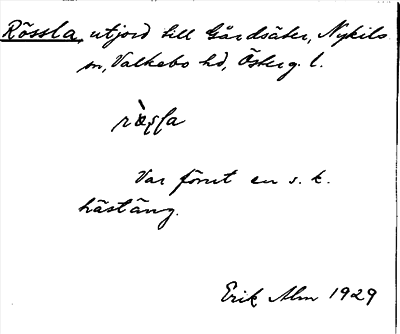 Rössla, utjord till Gårdsäter, Nykils
sn, Valkebo hd, Österg. l.
Var förut en s. k.
hästäng.
Erik Alm 1929